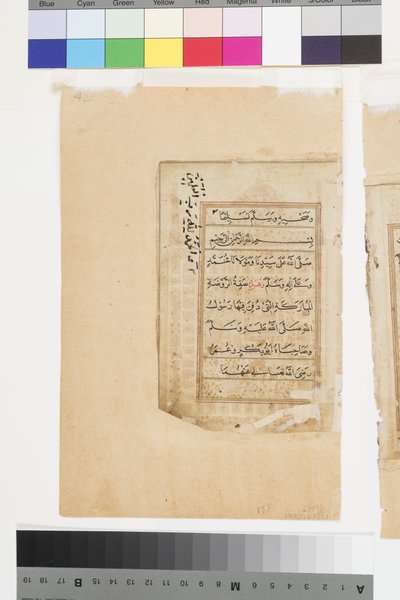 Blue Cyan Green Yellow Red Magenta White 3/Color Black
وصحبه وسلم تسليما
بسم الله الرحمن الرحيم
صلى الله على سيدنا ومولانا محمد
وعلى اله وسلم وهذه صفة الروضة
المباركة التي دفن فيها رسول
الله صلى الله عليه وسلم
وصاحباه ابو بكر وعمر
رضي الله تعالى عنهما
والحمد لله رب العالمين
19 18 17 B 15 14 13 12 11 10 9 8 M 6 5 4 3 2 1 A